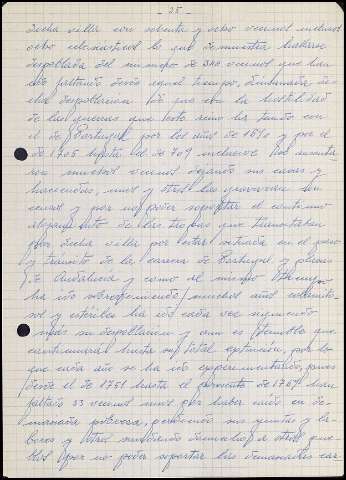 - 25 -
dicha villa con sesenta y ocho vecinos inclusos
ocho eclesiásticos lo que demuestra hallarse
despoblada del número de 340 vecinos que han
ido faltando desde aquel tiempo, dimanada
esta despoblación de que con la hostilidad
de las guerras que este reino ha tenido con
el de Portugal por los años de 1640 y por el
de 1705 hasta el de 709 inclusive
con muchos vecinos dejando sus casas y
haciendas, unos y otros las gravaron con
censos y por no poder soportar el continuo
alojamiento de las tropas que transitaban
por dicha villa por estar situada en el paso
y tránsito de la carrera de Portugal y plazas
de Andalucía y como al mismo tiempo
ha ido sobreviniendo muchos años calamito-
sos y estériles ha ido cada vez siguiendo
más su despoblación y aun es temible que
continuará hasta su total extinción, por lo
que cada año se ha ido experimentando, pues
desde el de 1751 hasta el presente de 1769 han
faltado 33 vecinos unos por haber caído en de-
masiada pobreza, perdiendo sus yuntas y la-
bores y otros mudando domicilio a otros pue-
blos por no poder soportar las demasiadas car-